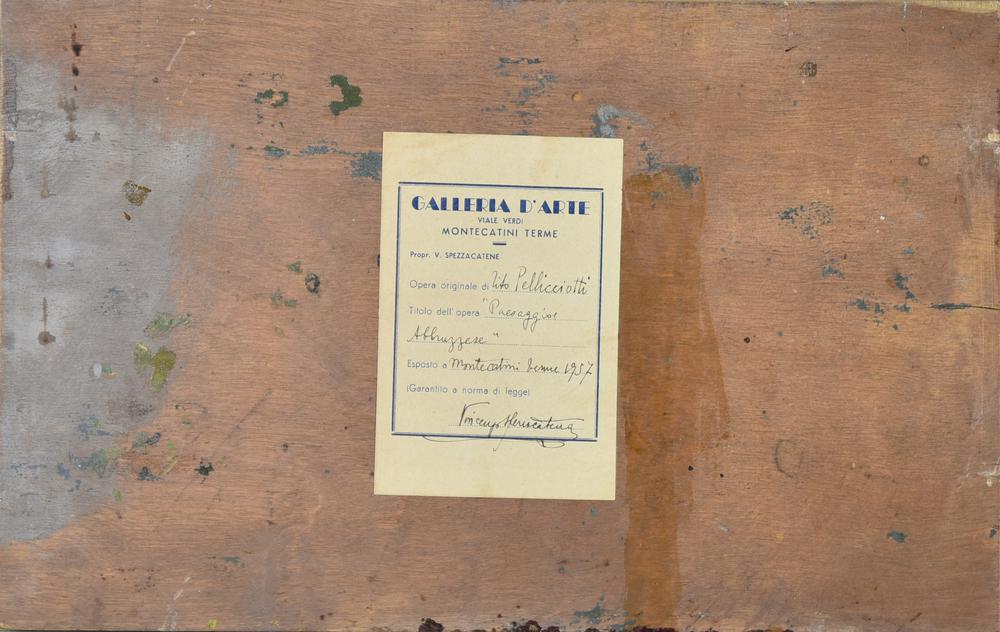 GALLERIA D'ARTE
VIALE VERDI
MONTECATINI TERME
Propr. V. SPEZZACATENE
Opera originale di Tito Pellicciotti
Titolo dell'opera "Paesaggio
Abbruzzese"
Esposto a Montecatini Terme 1957
(Garantito a norma di legge)